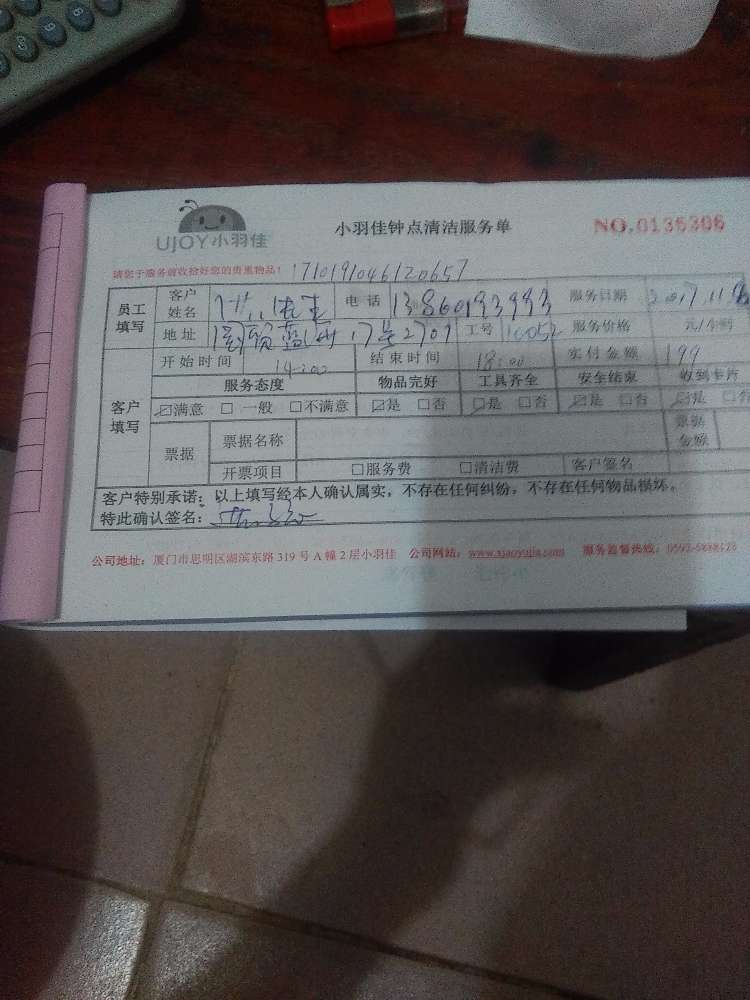 UJOY小羽佳 小羽佳钟点清洁服务单 NO.0135306
请您于服务前收拾好您的贵重物品! 1710191046120657
员工填写 客户姓名 先生 电话 13860193993 服务日期 2017.11
地址 蓝 17号2707 工号 服务价格 元/小时
客户填写 开始时间 14:00 结束时间 18:00 实付金额 199
服务态度 物品完好 工具齐全 安全结束 收到卡片
☑满意 □一般 □不满意 ☑是 □否 ☑是 □否 ☑是 □否 ☑是 □否
票据 票据名称 票据金额
开票项目 □服务费 □清洁费 客户签名
客户特别承诺:以上填写经本人确认属实,不存在任何纠纷,不存在任何物品损坏。
特此确认签名:
公司地址:厦门市思明区湖滨东路 319 号 A 幢 2 层小羽佳 公司网站:www.xiaoyujia.com 服务监督热线: